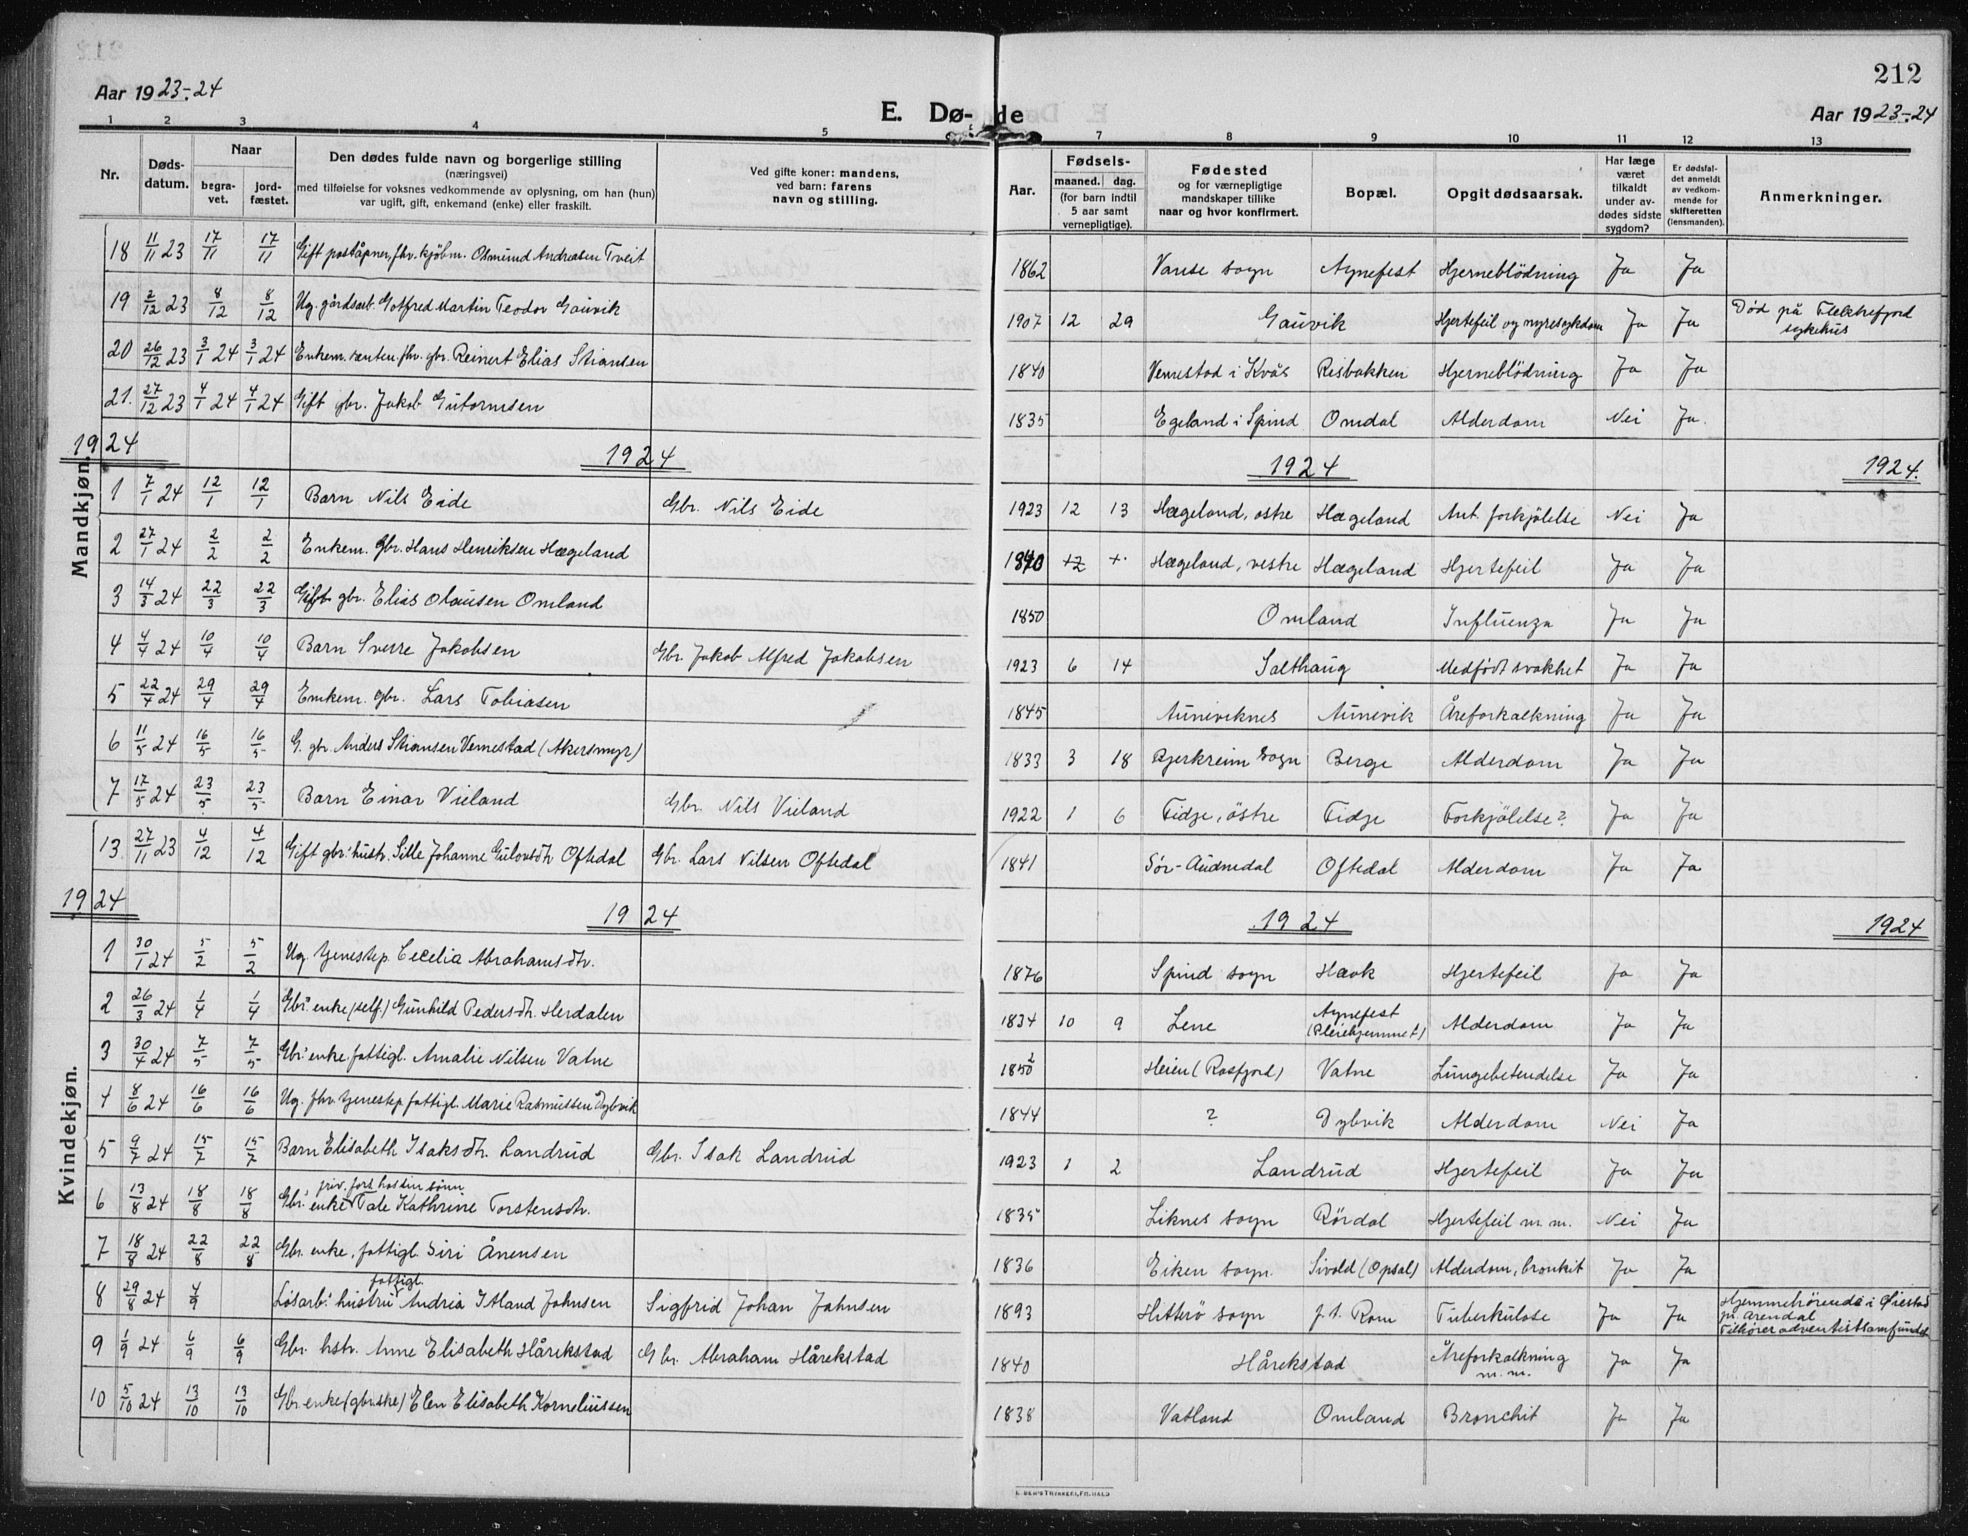 212
Aar 1923-24
E. Dø- de
Aar 1923-24
1 2 3 4 5 7 8 9 10 11 12 13
Nr.
Døds-
datum.
Naar
begra-
vet.
jord-
fæstet.
Den dødes fulde navn og borgerlige stilling
(næringsvei)
med tilføielse for voksnes vedkommende av oplysning, om han (hun)
var ugift, gift, enkemand (enke) eller fraskilt.
Ved gifte koner: mandens,
ved barn: farens
navn og stilling.
Aar.
Fødsels-
maaned. dag.
(for barn indtil
5 aar samt
vernepligtige).
Fødested
og for værnepligtige
mandskaper tillike
naar og hvor konfirmert.
Bopæl.
Opgit dødsaarsak.
Har læge
været
tilkaldt
under av-
dødes sidste
sygdom?
Er dødsfal-
det anmeldt
av vedkom-
mende for
skifteretten
(lensmanden).
Anmerkninger.
Mandkjøn.
18 11/11 23 17/11 17/11 Gift poståpner, fhv. kjøbm. Osmund Andreasen Tveit 1862 Vanse sogn Aynefest Hjerneblödning Ja Ja
19 2/12 23 8/12 8/12 Ug. gårdsarb. Gotfred Martin Teodor Gauvik 1907 12 29 Gauvik Hjertefeil og nyresykdom Ja Ja Død på Flekkefjord
sykehus
20 26/12 23 3/1 24 3/1 24 Enkem. renten. fhv. gbr. Reinert Elias Stiansen 1840 Vemestad i Kvås Risbakken Hjerneblödning Ja Ja
21. 27/12 23 4/1 24 4/1 24 Gift gbr. Jakob Gutormsen 1835 Egeland i Spind Omdal Alderdom Nei Ja.
1924 1924 1924 1924.
1 7/1 24 12/1 12/1 Barn Nils Eide Gbr. Nils Eide 1923 12 13 Hægeland, østre Hægeland Ant. forkjölelse Nei Ja
2 27/1 24 2/2 2/2 Enkem. Gbr. Hans Henriksen Hægeland 1840 Hægeland, vestre Hægeland Hjertefeil Ja Ja
3 14/3 24 22/3 22/3 Gift gbr. Elias Olausen Omland 1850 Omland Influenza Ja Ja
4 4/4 24 10/4 10/4 Barn Sverre Jakobsen Gbr. Jakob Alfred Jakobsen 1923 6 14 Salthaug Medfödt svakhet Ja Ja
5 22/4 24 29/4 29/4 Emkem. gbr. Lars Tobiasen 1845 Auneviknes Aunevik Åreforkalkning Ja Ja
6 11/5 24 16/5 16/5 G. gbr. Anders Stiansen Vemestad (Akersmyr) 1833 3 18 Bjerkreim sogn Berge Alderdom Ja Ja
7 17/5 24 23/5 23/5 Barn Einar Vieland Gbr. Nils Vieland 1922 1 6 Fidje, östre Fidje Forkjölelse? Ja Ja
Kvindekjøn.
13 27/11 23 4/12 4/12 Gift gbr: hustr. Sille Johanne Gulovsdtr Oftedal Gbr. Lars Nilsen Oftedal 1841 Sör-Audnedal Oftedal Alderdom Ja Ja
1924 1924 1924 1924
1 30/1 24 5/2 5/2 Ug. tjenestep. Cecelia Abrahamsdtr. 1876 Spind sogn Hauk Hjertefeil Ja Ja
2 26/3 24 1/4 1/4 Gbr: enke (self.) Gunhild Pedersdtr. Herdalen 1834 10 9 Lene Aynefest
(Pleiehjemmet) Alderdom Ja Ja
3 30/4 24 7/5 7/5 Gbr: enke fattigl. Amalie Nilsen Vatne 1850 2 Heien (Rosfjord) Vatne Lungebetendelse Ja Ja
4 8/6 24 16/6 16/6 Ug. fhv. tjenestep fattigl. Marie Rasmussen Dybvik 1844 ? Dybvik Alderdom Nei Ja
5 9/7 24 15/7 15/7 Barn Elisabeth Isaksdtr. Landrud Gbr. Isak Landrud 1923 1 2 Landrud Hjertefeil Ja Ja
priv. fors. hos sin sönn
6 13/8 24 18/8 18/8 Gbr: enke Tale Kathrine Torstensdtr. 1835 Liknes sogn Rördal Hjertefeil m. m. Nei Ja
7 18/8 24 22/8 22/8 Gbr. enke, fattigl. Siri Ånensen 1836 Eiken sogn. Sivold (Opsal) Alderdom, bronkit Ja Ja
fattigl.
8 29/8 24 4/9 Løsarb: hustru Andria Isaland Johnsen Sigfrid Johan Johnsen 1893 Hitterö sogn p. t. Rom Tuberkulose Ja Ja Hjemmehörende i Öiestad
pr. Arendal
Tilhører adventistsamfundet
9 1/9 24 6/9 6/9 Gbr. hstr. Anne Elisabeth Hårekstad Gbr. Abraham Hårekstad 1840 Hårekstad Åreforkalkning
m. m. Ja Ja
10 5/10 24 13/10 13/10 Gbr enke (gbrske) Elen Elisabeth Korneliussen 1838 Vatland Omland Bronchit Ja Ja